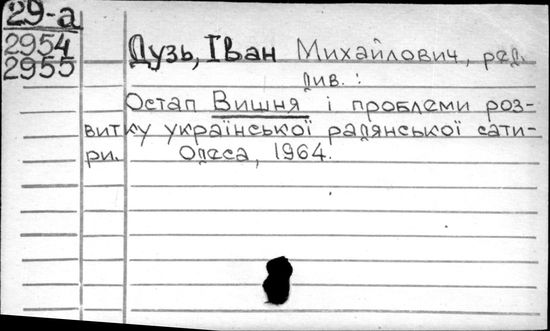 29-а
2954
2955
Дузь, Іван Михайлович, ред.
див.:
Остап Вишня і проблеми роз-
витку української радянської сати-
ри. Одеса, 1964.